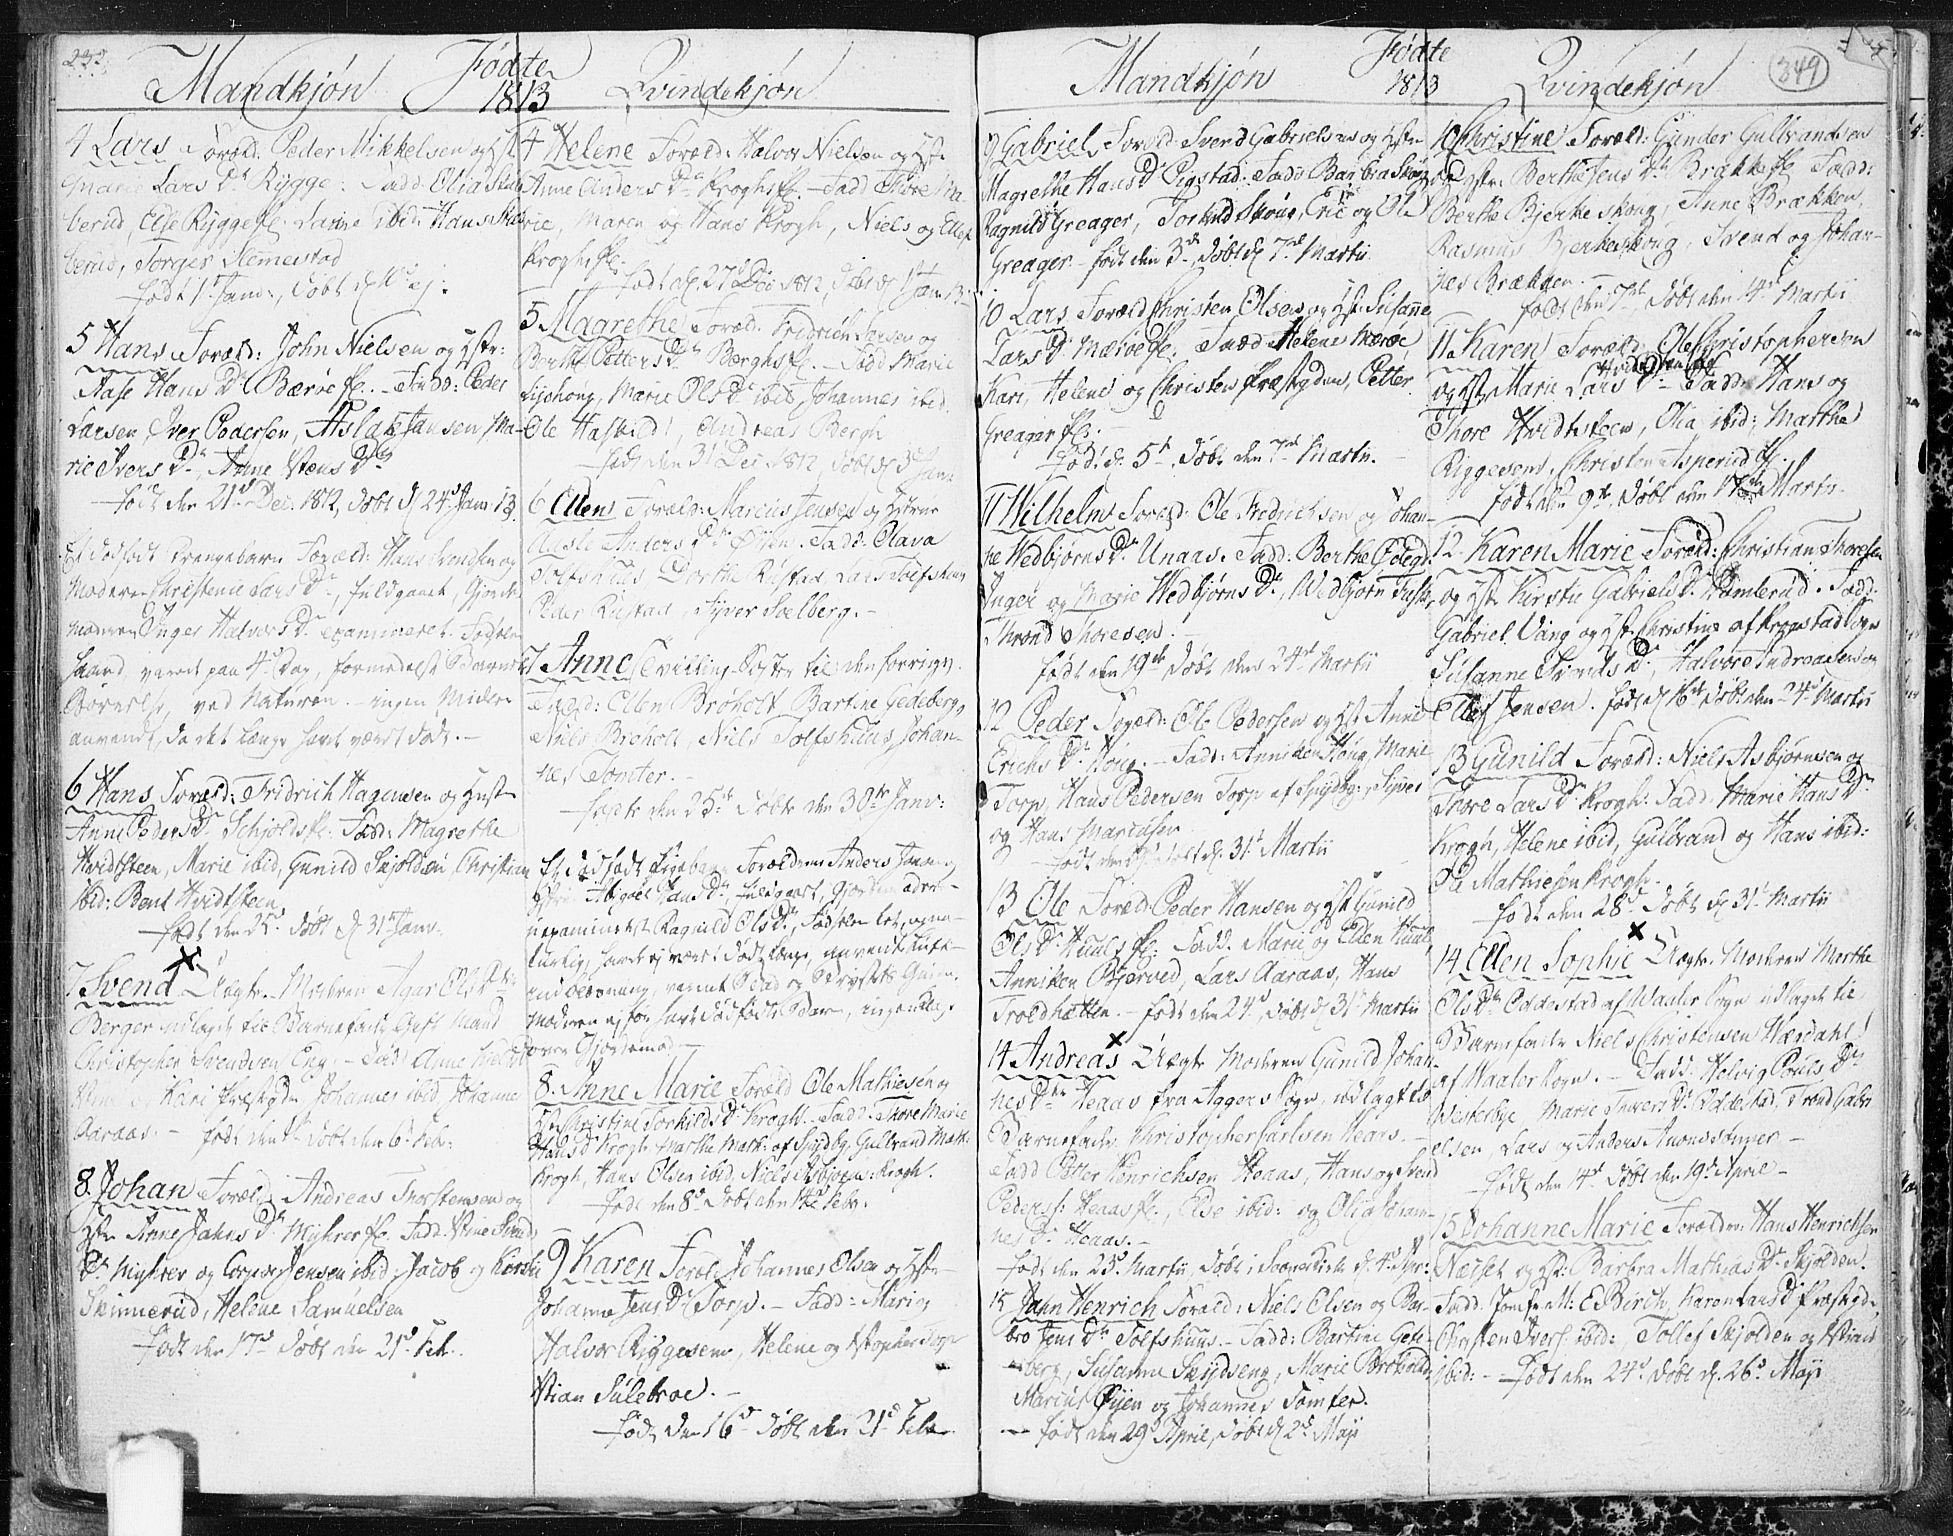 Mandkjøn Fødte 1813 Qvindekjøn
4 Lars Foræld: Peder Mikkelsen og Hstr
Marie Lars Dr Rygge: Fadd: Olia
berud, Else Rygge ibid: Hans
berud, Torger Slemestad
født 1st Janv:, døbt
5 Hans Foræld: John Nielsen og Hstr:
Aase Hans Dr Bærøe . Fadd: Peder
Larsen, Iver Pedersen, Aslak Jansen, Ma-
rie Ivers Dr, Anne Dr
født den 21d Dec: 1812, døbt d 24d Janv: 13.
Et dødfødt Drengebarn Foræld: Hans og
Moderen Christenie Lars Dr, fuldgaaet, Gjorde
moderen Inger Halvors Dr examineret. Fødsle
varet paa 4d Dag, formedelst Barnets
Størrelse, ved Naturen. - ingen Midler
anvendt, da det længe havt været dødt. -
6 Hans Foræld: Fridrich Hagensen og Hust
Anne Peders Dr Schjolds . Fadd: Magrethe
Hvidtsteen, Marie ibid, Gunild Skjolden, Christian
ibid: Bent Hvidtsteen
født den 25d døbt d 31t Janv.
7 Svend Uægte. Moderen Agar Ols Dr
Berger udlagde til Barnefader Gift Mand
Christopher Svendsen Eng. - Fadd: Anne
og Kari Præstgdn Johannes ibid, Johanne
Aaraas. - født den døbt den 6d Feb:
8. Johan Foræld: Andreas Thorstensen og
Hstr Anne Jahns Dr Myhrer . Fadd: Stine Svends
Dr Myhrer og Jensen ibid: Jacob og Kirstie
Skinnerud, Helene Samuelsen
født den 17d døbt den 21d Feb.
4 Helene Foræld: Halvor Nielsen og Hst:
Anne Anders Dr Kroghs . - Fadd: Thore Ma-
rie, Maren og Hans Krogh, Niels og Ellef
Krogh .
født d. 27d Dec 1812, døbt d 1st Jan: 13.
5 Magrethe Foræld: Fridrich Larsen og
Berthe Petters Dr Berghs . - Fadd: Marie
Ligohoug, Marie Ols Dr ibid Johannes ibid.
Ole Hasle, Andreas Bergh
født den 31 Dec 1812, døbt d 3d Janv
6 Ellen Foræld: Marcus Jensen og Hstrue
Anders Dr Øyen. Fadd: Olava
Tolfshuus, Dorthe Rustad, Lars Tolfshuus
Peder Rustad, Syver Solberg. -
7 Anne (Tvilling-Søster til den forrige.
Fadd: Ellen Brøholt, Bartine Gedeberg,
Niels Broholt, Niels Tolfshuus, Johan-
nes Tomter. -
fødte den 25d døbte den 30te Janv:
Et dødfødt Pigebarn Forældrene Anders Jans og
Hstr: Abigael Jans Dr, fuldgaaet, Gjordemoder-
exsamineret Ragnild Ols Dr, Fødselen let, og na-
turlig, havt ej været dødt længe, anvendt Luft-
indblæsning,
moderen ej før havt dødfødt Barn, ingen klage
over Gjordemod. -
8. Anne Marie Foræld Ole Mathiesen og
Hstr Christine Torkilds Dr Krogh. - Fadd: Thore Marie
Hans Dr Krogh, Marthe Math: af Spydbg: Gulbrand Math:
Krogh, Hans Olsen ibid, Niels Asbjørns: Krogh.
født den 8d døbt den 14d Feb:
9 Karen Foræld Johannes Olsen og Hstr
Johanne Jens Dr Torp. - Fadd: Mari og
Halvor Ryggesem, Helene og Torp
Stian Sulebroe. -
født den 16d døbt den 21d Feb.
349
Mandkjøn Fødte 1813 Qvindekjøn
9 Gabriel Foræld: Svend Gabrielsen og Hstr
Magrethe Hans Dr Vigstad. Fadd: Barbra Skoug
Ragnild Greager, Torkild Skoug, Eric og Ole
Greager. - født den 3d, døbt d 7d Martii
10 Lars Foræld Christen Olsen og Hst: Susanne
Lars Dr . Fadd: Helene
Kari, Helene og Christen Præstgden, Petter
Greager .
født d. 5t, døbt den 7d Martii.
11 Wilhelm Foræld: Ole Fredrichsen og Johan-
ne Wedbjørns Dr Unaas. Fadd: Berthe
Inger og Marie Wedbjørns Dr, Wedbjørn
Thrond Thoresen.
født den 19de døbt den 24d Martii
12 Peder Foræld: Ole Pedersen og Hst Anne
Erichs Dr Houg. - Fadd: Anniken Houg, Marie
Torp, Hans Pedersen Torp af Spydbg:, Syver
og Hans Marcusen
født døbt d. 31t Martii
13 Ole Foræld: Peder Hansen og Hst Gunild
Ols Dr Huuls . Fadd: Marie og Ellen Huul,
Anniken Bjerved, Lars Aaraas, Hans
Troldhatten. - født den 24d, døbt d 31t Martii
14 Andreas Uægte Moderen Gunild Johan-
nes Dr Heaas fra Aggers Sogn, udlagt til
Barnefader Christopher Carlsen Heaas. -
Fadd Petter Henrichsen Heaas, Hans og Svend
Peders: Heaas , Else ibid: og Olia Johan-
nes Dr Heaas. -
født den 23d Martii, døbt i d. 4d Apr:
15 Jahn Henrich Foræld: Niels Olsen og Bar-
bro Jens Dr Tolfshuus. - Fadd: Bartine Gede-
berg, Susanne Skydseng, Marie Brøholdt,
Marius Øyen og Johannes Tomter.
født den 29d April, døbt d 2d Maji
10 Christine Foræld: Gunder Gulbrandsen
og Hstr: Berthe Jens Dr Brække . Fadd:
Berthe Bjerkeskoug, Anne Brækken,
Rasmus Bjerkeskoug Svend og Johan-
nes Brækken. -
født den 7d døbt den 14d Martii
11 Karen Foræld: Ole Christophersen
og Hst: Marie Lars Dr Hvidtsteen . Fadd: Hans og
Thore Hvidtsteen, Olia ibid: Marthe
Riggesem, Christen Asperud .
født den 9de, døbt den 14de Martii.
12. Karen Marie Foræld: Christian Thoresen
og Hst Kirstie Gabriels Dr Ramlerud. Fadd.
Gabriel Vang og Hst: Christine af Krogstad Sogn
Susanne Svends Dr, Halvor Andreassen og
Ellef Jensen. født d 16de døbt den 24d Martii
13 Gunild Foræld: Niels Asbjørnsen og
Thore Lars Dr Krogh. Fadd: Marie Hans Dr
Krogh, Helene ibid, Gulbrand og Hans ibid:
Ole Mathiesen Krogh.
født den 28d døbt d 31t Martii
14 Ellen Sophie Uægte. Moderen Marthe
Ols Dr Eddestad af Waaler Sogn udlagde til
Barnefader Niels Christensen Hærdahl
af Waaler Sogn. - Fadd: Helvig Pouls Dr
Westerbye, Marie Thores Dr Eddestad, Trond Gabri-
elsen, Lars og Anders
født den 4d døbt den 19d April -
15 Johanne Marie Forældre: Hans Henrichsen
Næsset og Hst: Barbra Mathias Dr Skjolden.
Fadd. Jomfru M: E Birch, Karen Lars Dr Præstgd.
Christen Ivers: ibid: Tollef Skjolden og
ibid: - født den 24d døbt d. 26d Maji